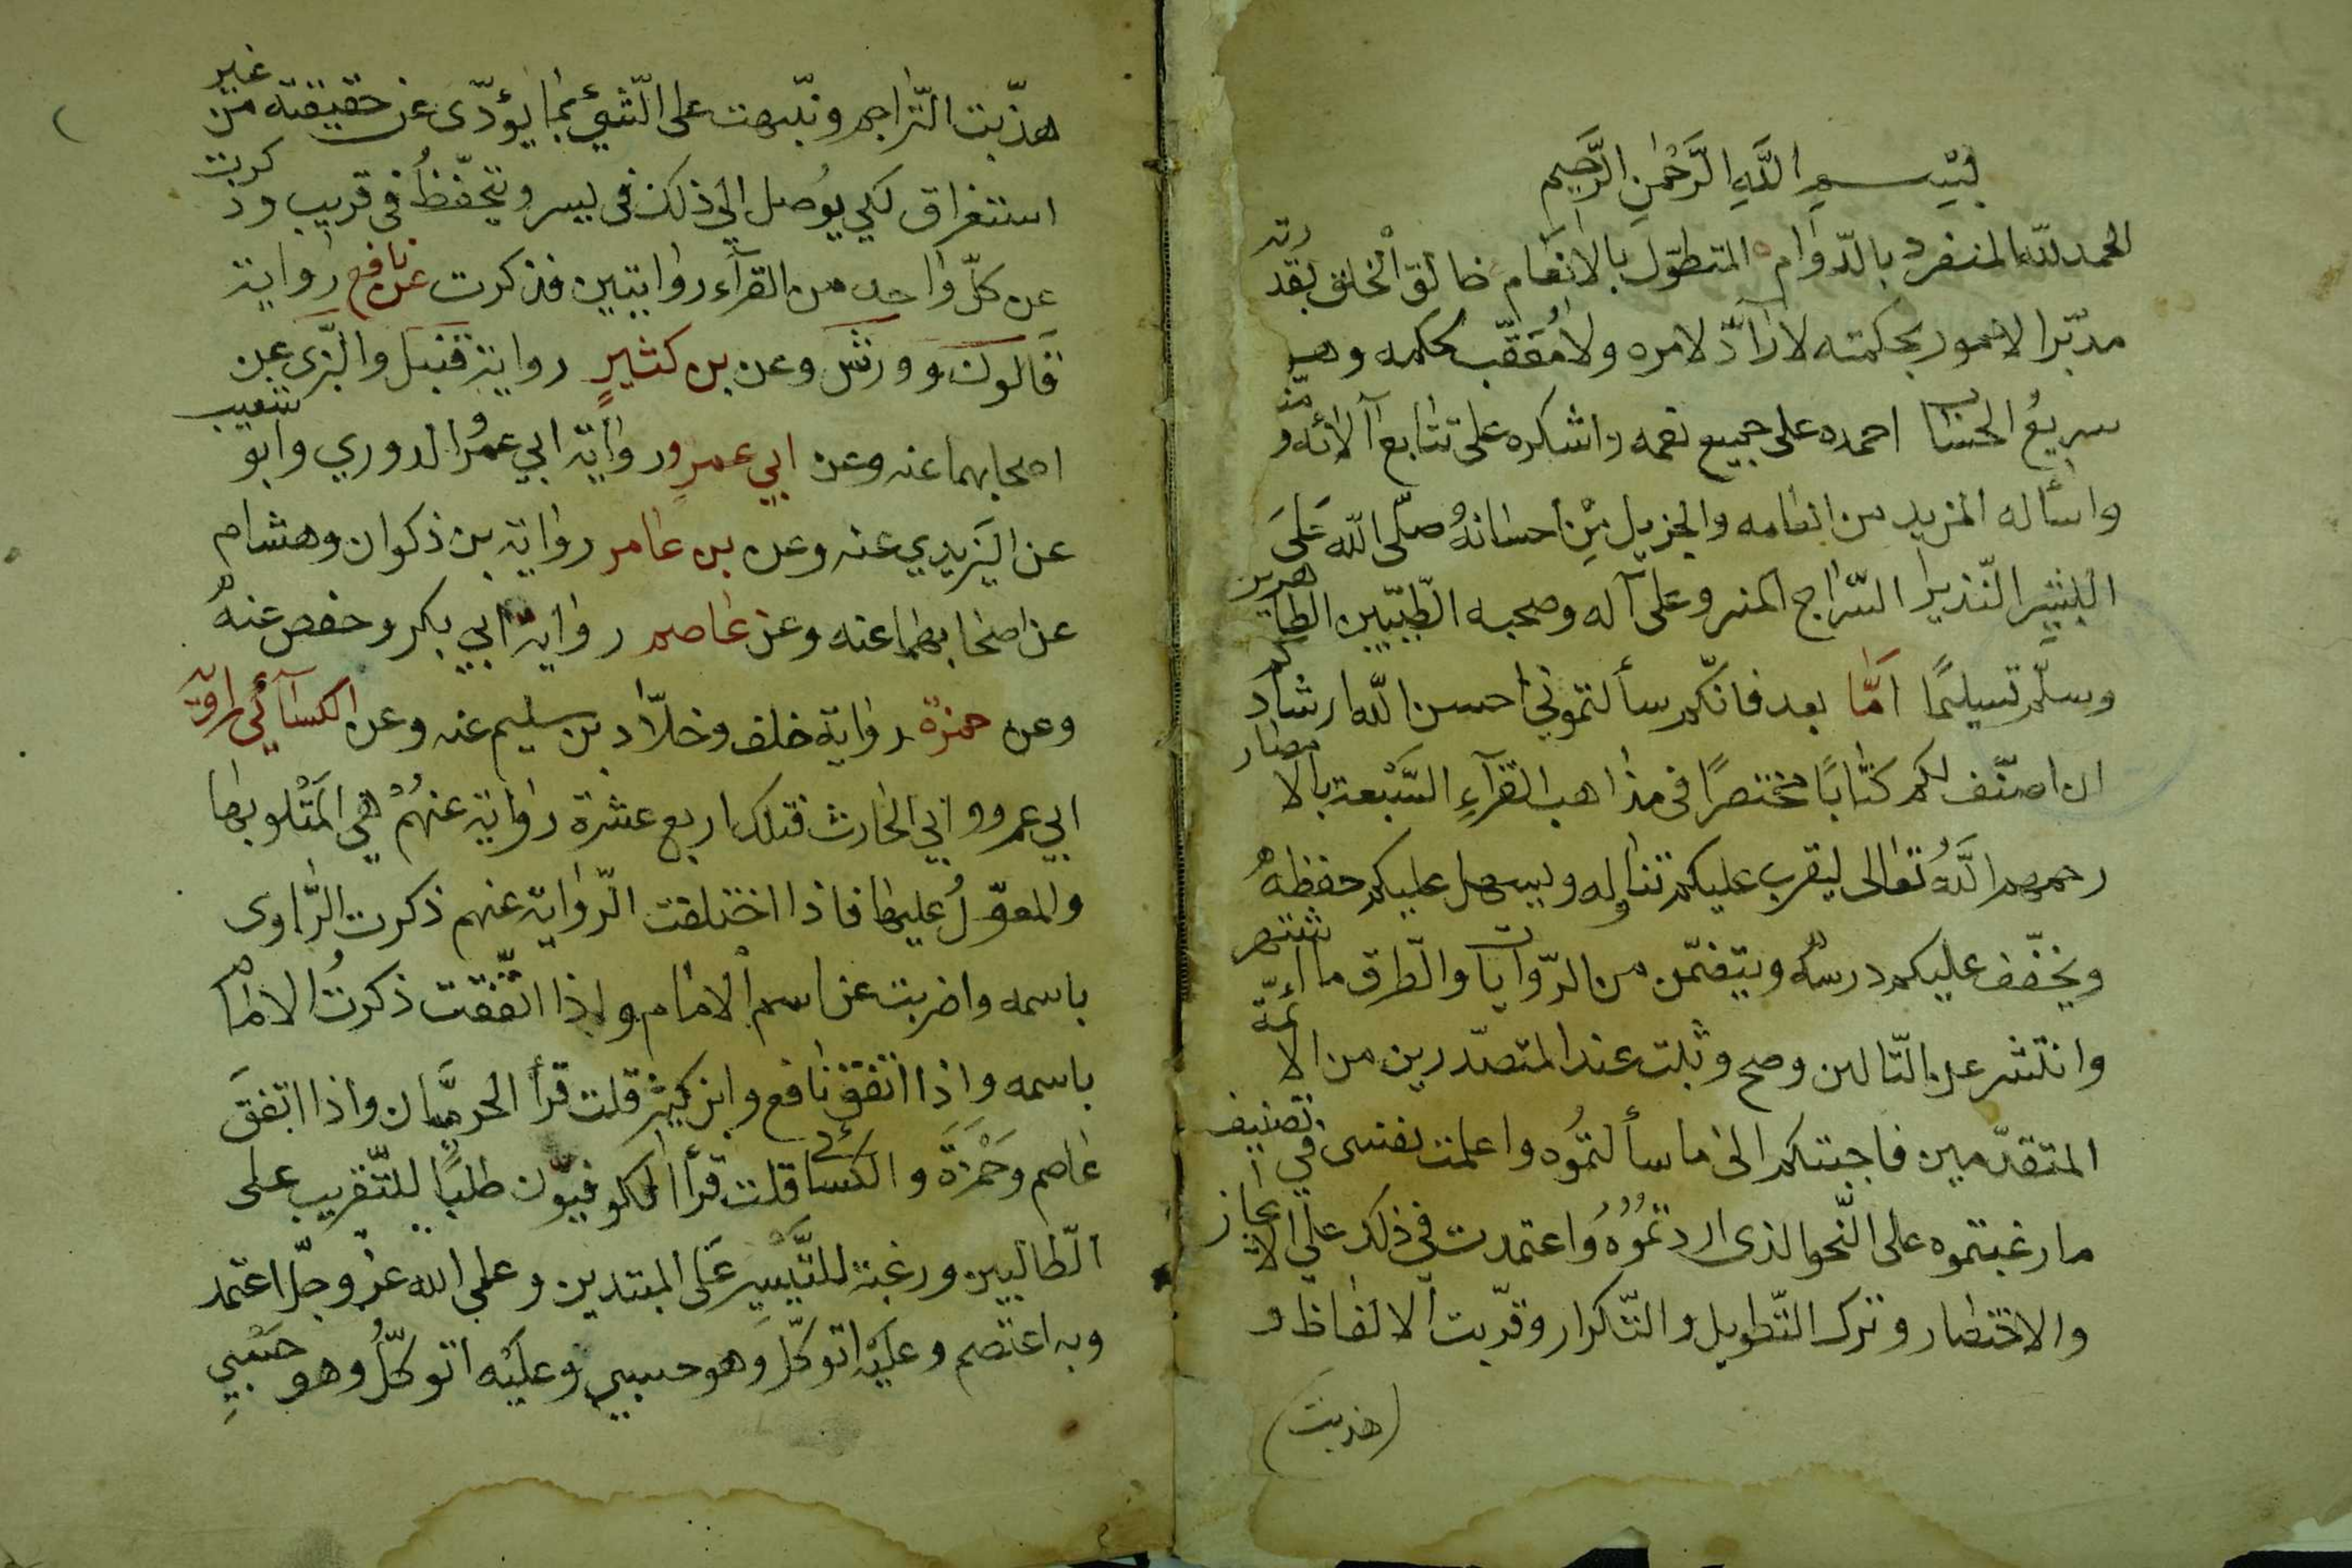 بسم الله الرحمن الرحيم
الحمد لله المنفرد بالدوام المتطول بالانعام خالق الخلق بقدرته
مدبر الامور بحكمته لا رآدّ لامره ولا معقّب لحكمه وهو
سريع الحساب احمده على جميع نعمه واشكره على تتابع آلائه و
واسأله المزيد من انعامه والجزيل من احسانه صلّى الله على
البشير النّذير السّراج المنير وعلى آله وصحبه الطّيّبين الطاهرين
وسلّم تسليمًا امّا بعد فانّكم سألتموني احسن الله ارشادكم
ان اصنّف لكم كتابًا مختصرًا في مذاهب القرآء السّبعة بالامصار
رحمهم الله تعالى ليقرب عليكم تناوله ويسهل عليكم حفظه
ويخفّف عليكم درسه ويتضمّن من الرّوايات والطّرق ما اشتهر
وانتشر عن التّالين وصح وثبت عند المتصدّرين من الائمّة
المتقدّمين فاجبتكم الى ما سألتموه واعلمت نفسى في تصنيف
ما رغبتموه على النّحو الذى اردتموه واعتمدت في ذلك على الايجاز
والاختصار وترك التّطويل والتّكرار وقرّبت الالفاظ و
(هذبت)
هذّبت التّراجم ونبّهت على الشّيئ بما يؤدّى عن حقيقته من غير
استغراق لكي يوصل الى ذلك في يسر ويتحفّظ في قريب وذكرت
عن كلّ واحد من القرآء روايتين فذكرت عن نافع رواية
قالون وورش وعن بن كثير رواية قنبل والبزّى عن
اصحابهما عنه وعن ابي عمرو رواية ابي عمر الدوري وابو شعيب
عن اليزيدي عنه وعن بن عامر رواية بن ذكوان وهشام
عن اصحابهما عنه وعن عاصم رواية ابي بكر وحفص عنه
وعن حمزة رواية خلف وخلّاد بن سليم عنه وعن الكسآئي رواية
ابي عمرو وابي الحارث فتلك اربع عشرة رواية عنهم هي المتلو بها
والمعوّل عليها فاذا اختلفت الرّواية عنهم ذكرت الرّاوى
باسمه واضربت عن اسم الامام واذا اتّفقت ذكرت الامام
باسمه واذا اتفق نافع وابن كثير قلت قرأ الحرميّان واذا اتفق
عاصم وحمزة والكسائي قلت قرأ الكوفيّون طلبًا للتّقريب على
الطّالبين ورغبة للتّيسير على المبتدين وعلى الله عز وجلّ اعتمد
وبه اعتصم وعليه اتوكّل وهو حسبي وعليه اتوكّل وهو حسبي